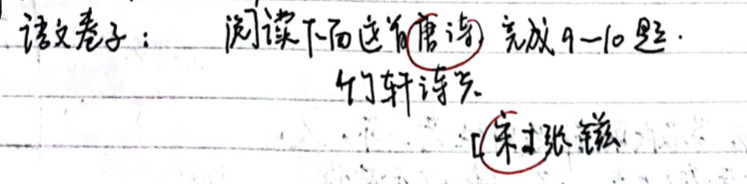 语文卷子： 阅读下面这首唐诗，完成9—10题.
竹轩诗兴
[宋]张镃